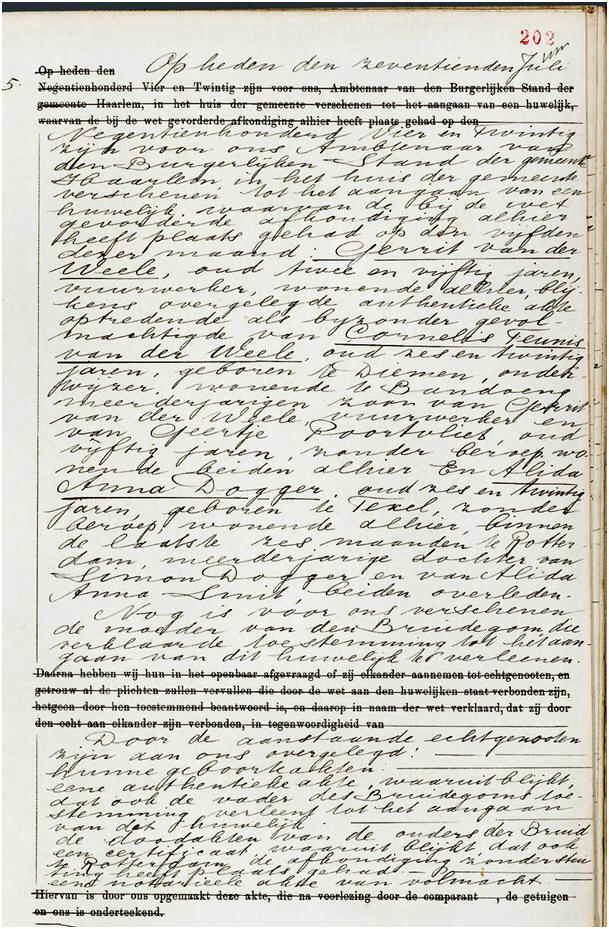 202
5.
Op heden den zeventienden Juli
Op heden den
Negentienhonderd Vier en Twintig zijn voor ons, Ambtenaar van den Burgerlijken Stand der
gemeente Haarlem, in het huis der gemeente verschenen tot het aangaan van een huwelijk,
waarvan de bij de wet gevorderde afkondiging alhier heeft plaats gehad op den
Negentienhonderd Vier en Twintig
zijn voor ons Ambtenaar van
den Burgerlijken Stand der gemeente
Haarlem, in het huis der gemeente
verschenen tot het aangaan van een
huwelijk, waarvan de bij de wet
gevorderde afkondiging alhier
heeft plaats gehad op den vijfden
dezer maand: Gerrit van der
Weele, oud twee en vijftig jaren,
vuurwerker, wonende alhier, blij-
kens overgelegde authentieke akte
optredende als byzonder gevol-
machtigde van Cornelis Teunis
van der Weele, oud zes en twintig
jaren, geboren te Diemen, onder-
wijzer, wonende te Bandoeng
meerderjarigen zoon van Gerrit
van der Weele, vuurwerker en
van Geertje Poortvliet, oud
vijftig jaren, zonder beroep, wo-
nende beiden alhier En Alida
Anna Dogger, oud zes en twintig
jaren, geboren te Texel, zonder
beroep, wonende alhier, binnen
de laatste zes maanden te Rotter-
dam, meerderjarige dochter van
Simon Dogger en van Alida
Anna Smit, beiden overleden.
Nog is voor ons verschenen
de moeder van den Bruidegom, die
verklaarde toestemming tot het aan-
gaan van dit huwelijk te verleenen.
Daarna hebben wij hun in het openbaar afgevraagd of zij elkander aannemen tot echtgenooten, en
getrouw al de plichten zullen vervullen die door de wet aan den huwelijken staat verbonden zijn,
hetgeen door hen toestemmend beantwoord is, en daarop in naam der wet verklaard, dat zij door
den echt aan elkander zijn verbonden, in tegenwoordigheid van
Door de aanstaande echtgenooten
zijn aan ons overgelegd:
hunne geboorteakten
eene authentieke akte, waaruit blijkt,
dat ook de vader des Bruidegoms toe-
stemming verleent tot het aangaan
van dit huwelijk
de doodakten van de ouders der Bruid
een certificaat, waaruit blijkt, dat ook
te Rotterdam de afkondiging zonder stui
ting heeft plaats gehad
eene notarieele akte van volmacht.
Hiervan is door ons opgemaakt deze akte, die na voorlezing door de comparant , de getuigen
en ons is onderteekend.